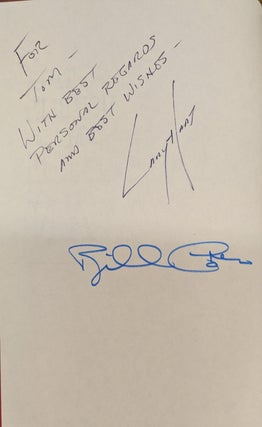 FOR
TOM —
WITH BEST
PERSONAL REGARDS
AND BEST WISHES —
Gary Hart
Bill Cohen